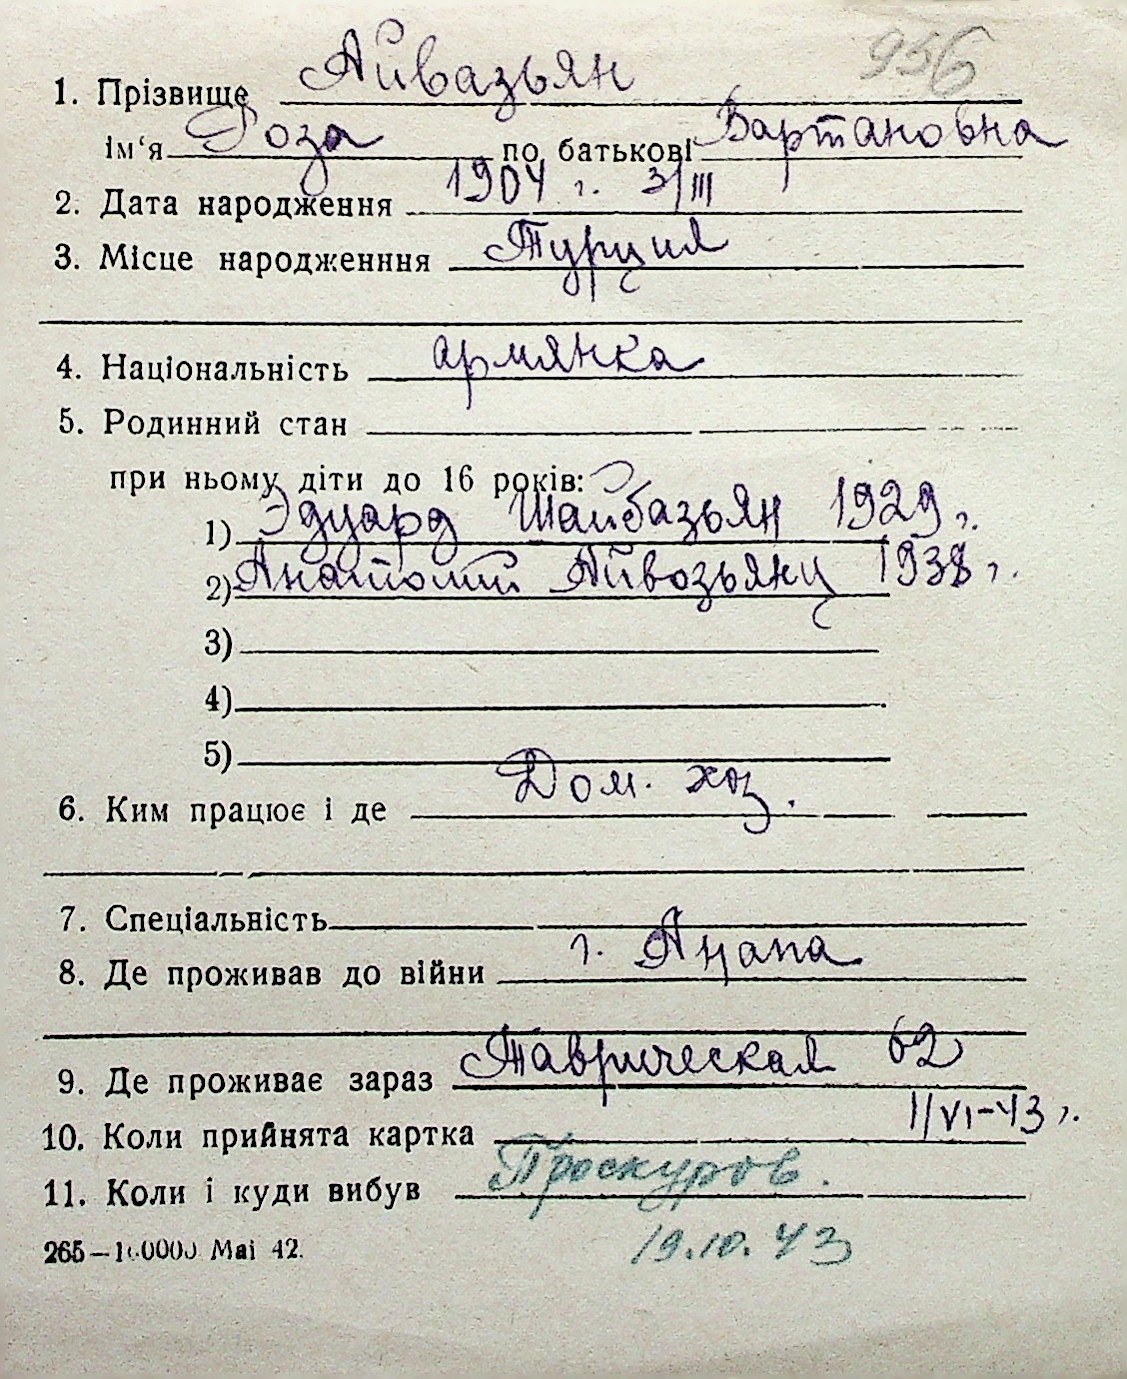 956
1. Прізвище Айвазьян
ім‘я Роза по батькові Вартановна
2. Дата народження 1904 г. 3/III
3. Місце народженння Турция
4. Національність армянка
5. Родинний стан
при ньому діти до 16 років:
1) Эдуард Шайбазьян 1929 г.
2) Анатолий Айвозьянц 1938 г.
3)
4)
5)
6. Ким працює і де Дом. хоз.
7. Спеціальність
8. Де проживав до війни г. Анапа
9. Де проживає зараз Таврическая 62
10. Коли прийнята картка 1/VI-43 г.
11. Коли і куди вибув Проскуров.
265 — 100000 Маі 42. 19.10.43